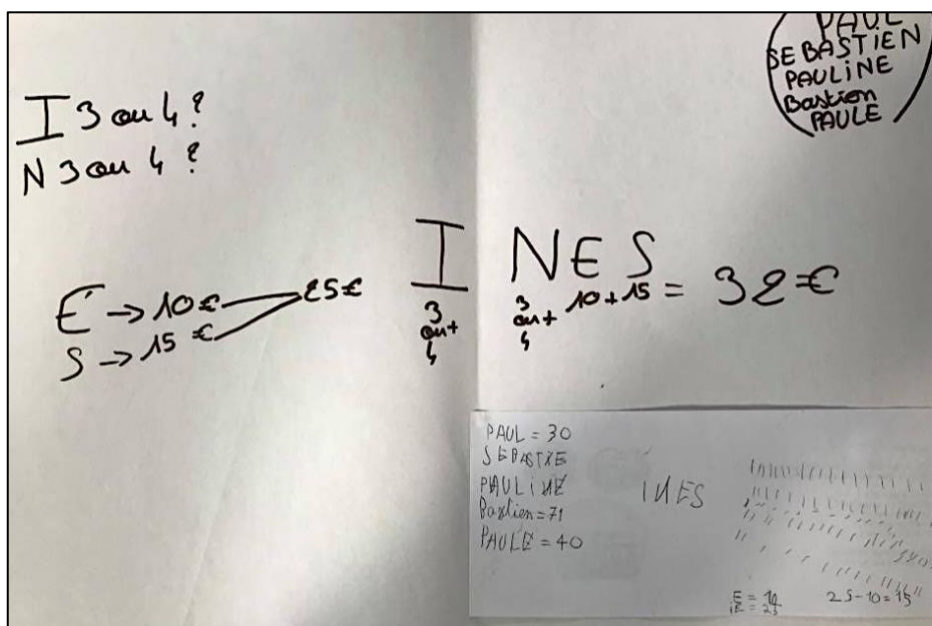 PAUL
SEBASTIEN
PAULINE
Bastien
PAULE
I 3 ou 4 ?
N 3 ou 4 ?
I NES
3 ou 4 + 3 ou 4 + 10 + 15 = 32 €
E → 10 € 25 €
S → 15 €
PAUL = 30
SEBASTIE
PAULINE
Bastien = 71
PAULE = 40
INES
25-10=15